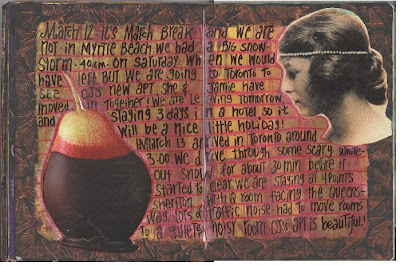 March 12 - It's March Break and we are
not in Myrtle Beach. We had a BIG snow-
storm - 40 cm. on Saturday when we would
have left BUT we are going to Toronto to
see CJ's new apt. she & Jamie have
moved in together! We are leaving tomorrow,
and staying 3 days in a hotel so it
will be a nice little holiday!
March 13 arrived in Toronto around
3:00. We drove through some scary white-
out snow for about 30 min before it
started to clear. We are staying at 4 points
Sheriton with a room facing the Queens-
way. Lots of traffic noise. Had to move rooms
to a quieter noisy room. CJ's apt is beautiful!